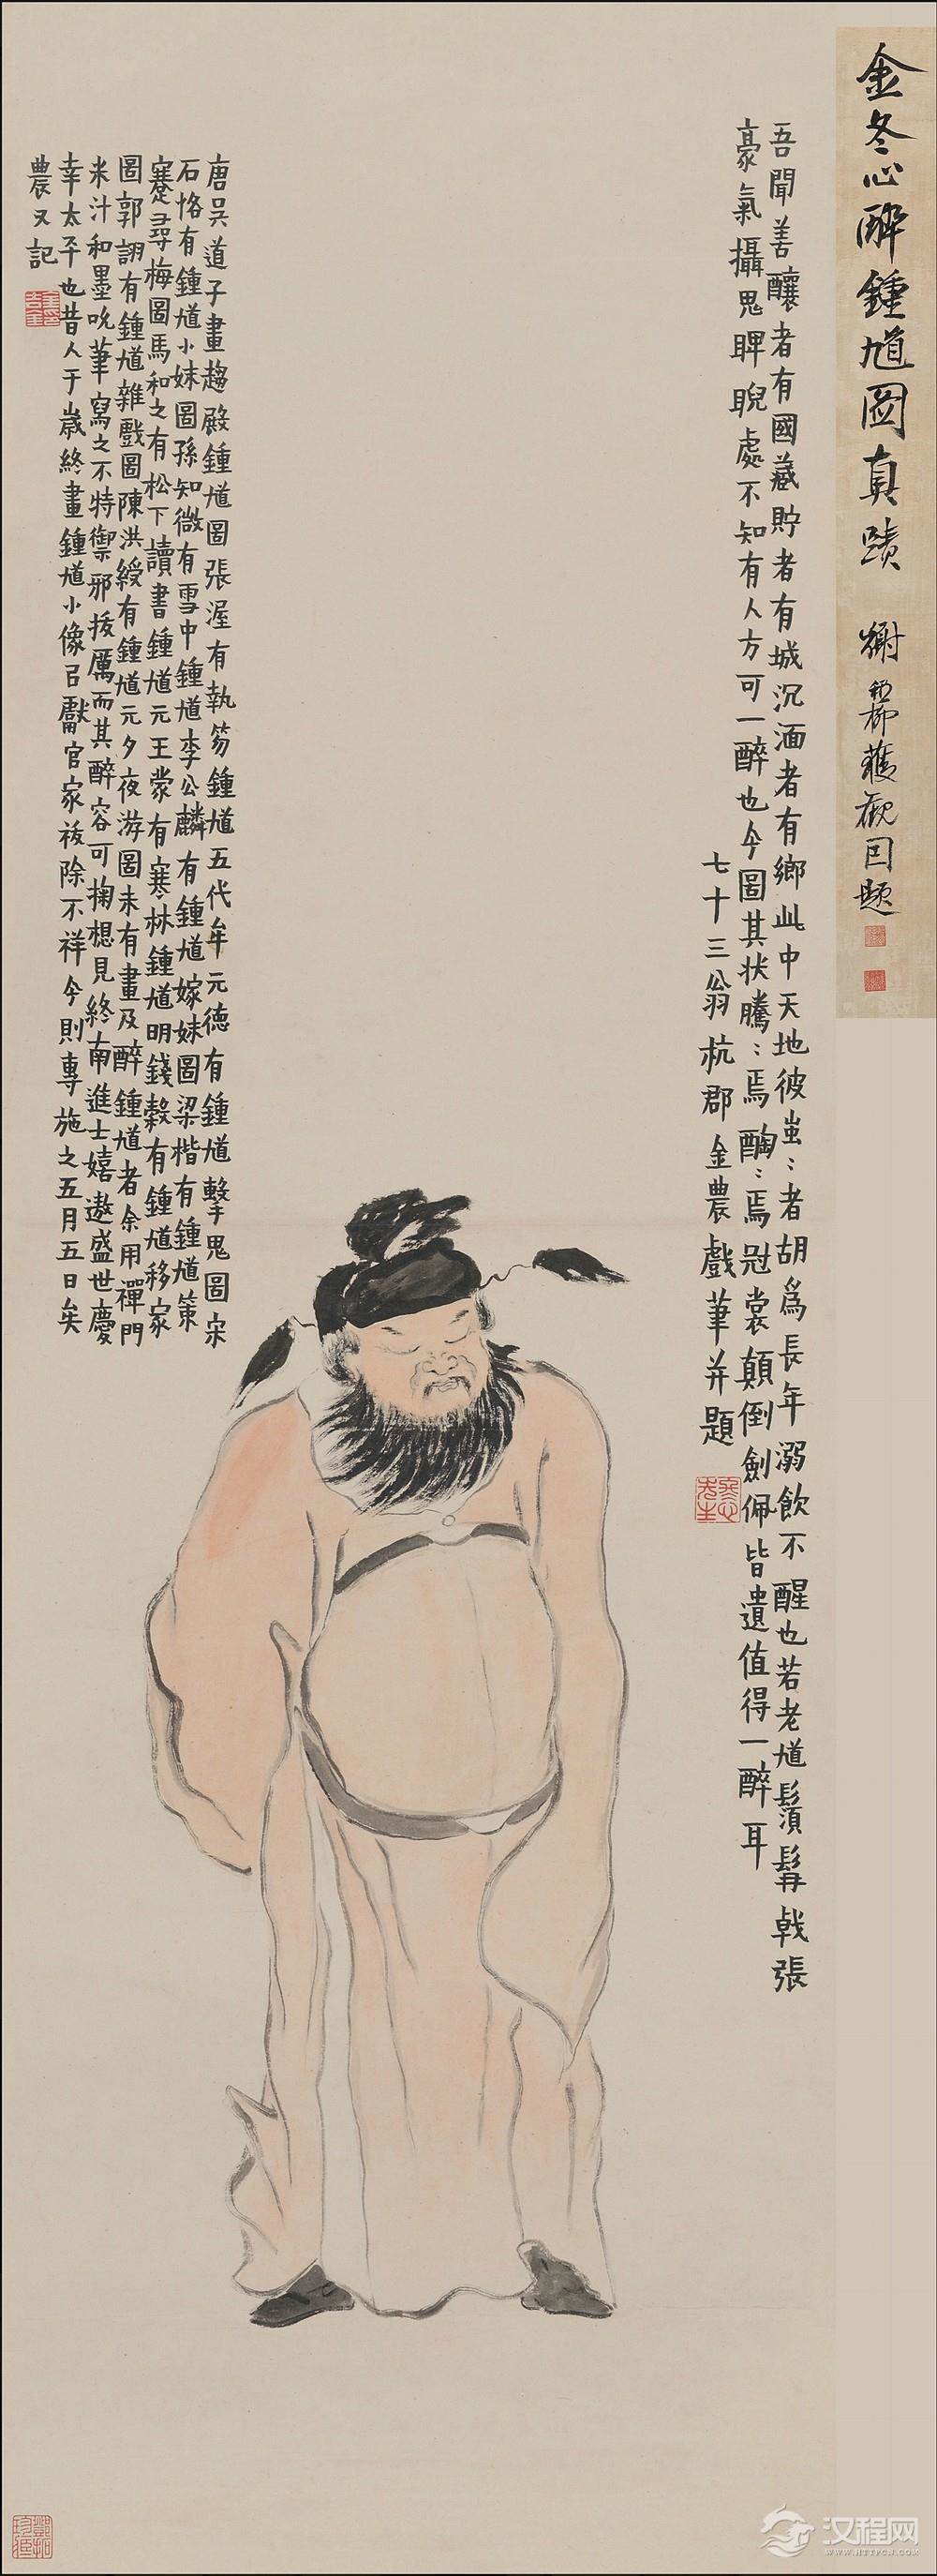 金冬心醉鍾馗圖真蹟
吾聞善釀者有國藏貯者有城沉湎者有鄉此中天地彼蚩:者胡為長年溺飲不醒也若老馗鬚髯戟張
豪氣攝鬼睥睨處不知有人方可一醉也今圖其狀騰:焉醄:焉冠裳顛倒劍佩皆遺值得一醉耳
七十三翁杭郡金農戲筆并題
唐吳道子畫趨殿鍾馗圖張渥有執笏鍾馗五代牟元德有鍾馗擊鬼圖宋
石恪有鍾馗小妹圖孫知微有雪中鍾馗李公麟有鍾馗嫁妹圖梁楷有鍾馗策
蹇尋梅圖馬和之有松下讀書鍾馗元王蒙有寒林鍾馗明錢穀有鍾馗移家
圖郭詡有鍾馗雜戲圖陳洪綬有鍾馗元夕夜游圖未有畫及醉鍾馗者余用禪門
米汁和墨吮筆寫之不特禦邪拔厲而其醉容可掬想見終南進士嬉遨盛世慶
幸太平也昔人于歲終畫鍾馗小像㠯獻官家祓除不祥今則專施之五月五日矣
農又記
汉程网
WWW.HTTPCN.COM